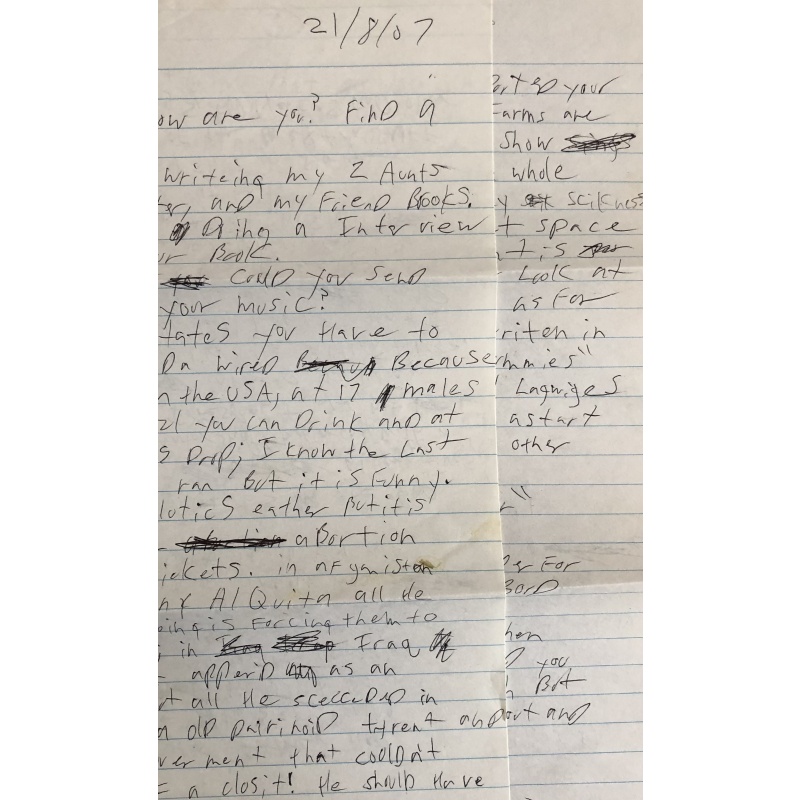 21/8/07
ow are you? Find a
writeing my 2 Aunts
ter, and my Friend Books.
Diing a Interview
ur Book.
Could you send
your music?
tates you Have to
Da wired Because
n the USA, at 17 males
21 you can Drink and at
s Drop; I know the Last
ran But it is Funny.
lotics eather But it is
aBortion
ickets. in afganistan
ny Al Quita all He
eing is Forcing them to
in Iraq
apperid as an
t all He scecceded in
a old pairinoid tyrent an
ver ment that couldn't
a closit! He should Have
orted your
Farms are
Show
whole
y scilkness
t space
t is
Look at
as For
riten in
mmies"
Lagwiges
astart
other
r"
er For
Bord
hen
D you
But
Dout and